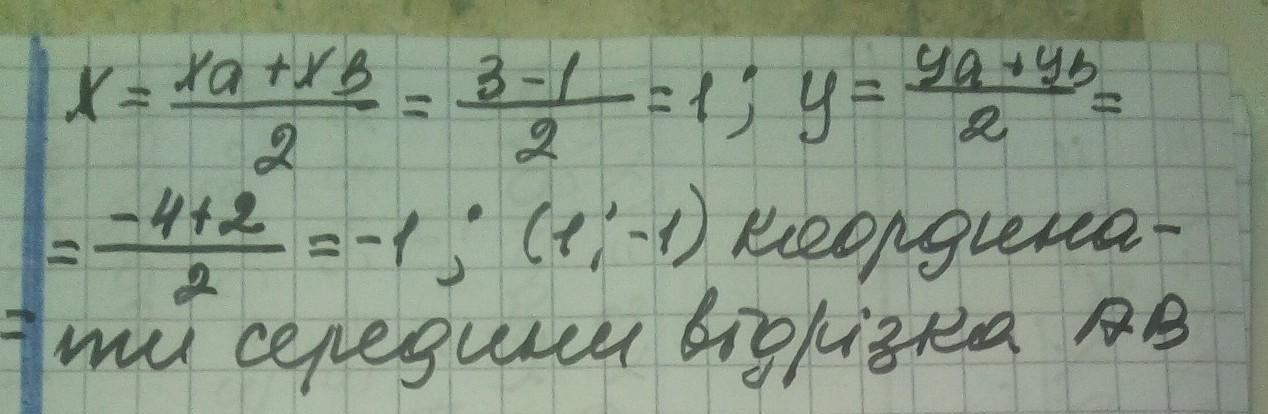 x = xa + xв / 2 = 3 - 1 / 2 = 1; y = ya + yb / 2 =
= -4+2 / 2 = -1; (1; -1) координа-
= ти середини відрізка AB